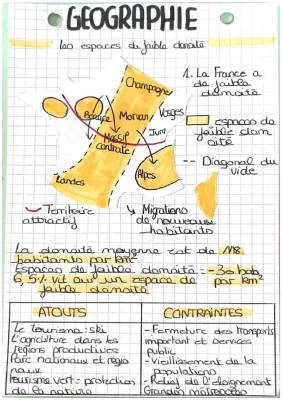 GEOGRAPHIE
Les espaces de faible densité
1. La France a
de faible
densité
espaces de
faible den
sité
-- Diagonal du
vide
Champagne
Vosges
Morvan
Jura
Massif
centrale
Alpes
Landes
Territoire
attractif
Migrations
de nouveaux
habitants
La densité moyenne est de 118
habitants par km²
Espaces de faible densité = -30 hab
par km²
6,5% vit sur un espace de
faible densité
ATOUTS
CONTRAINTES
Le tourisme : ski
L'agriculture dans les
régions productives
Parc nationals et régio
naux
tourisme vert : protection
de la nature
- Fermeture des transports
important et services
public
- Vieillissement de la
populations
- Relief de l'éloignement
Grandes métropoles